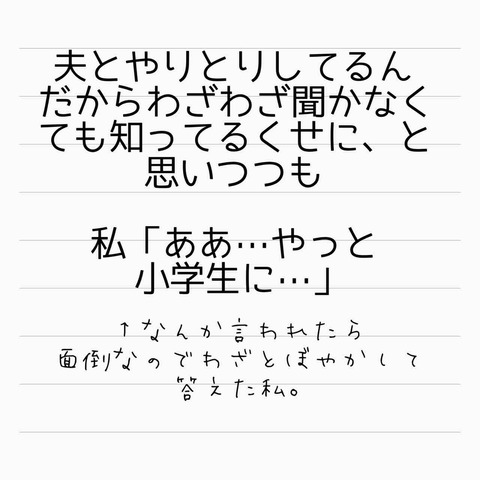 夫とやりとりしてるん
だからわざわざ聞かなく
ても知ってるくせに、と
思いつつも
私「ああ…やっと
小学生に…」
↑なんか言われたら
面倒なのでわざとぼやかして
答えた私。